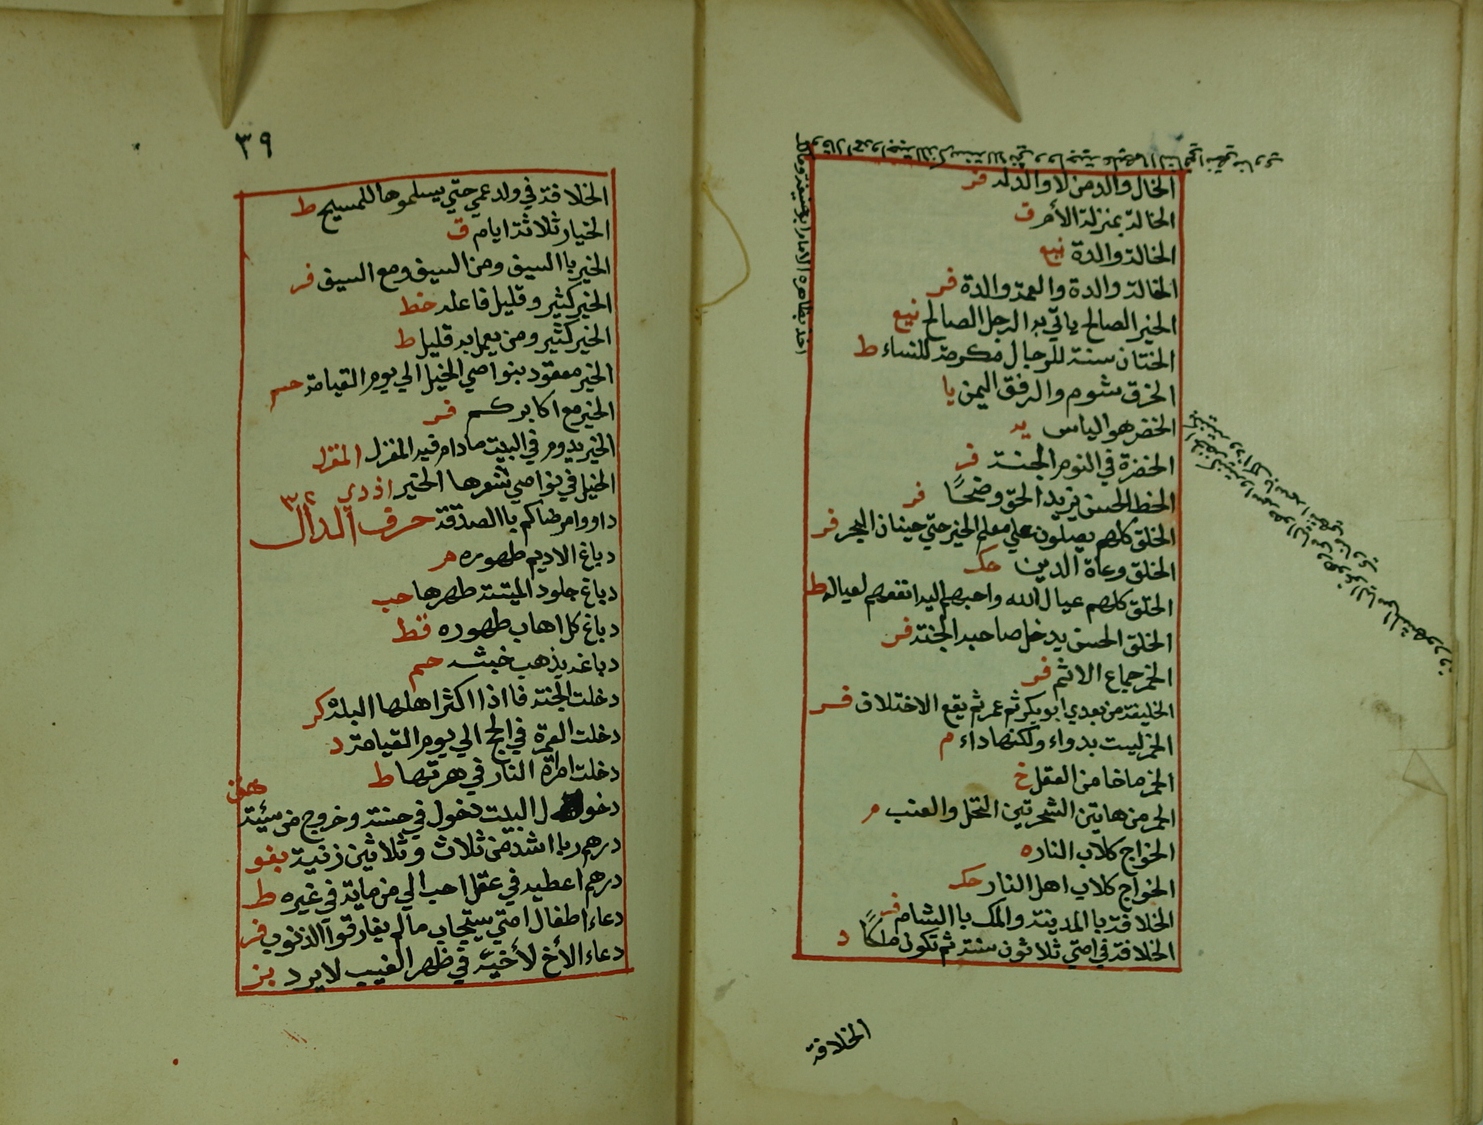 الخال والد من لا والد له فر
الخالة بمنزلة الأم ق
الخالة والدة نيع
الخالة والدة والعمة والدة فر
الخبر الصالح ياتي به الرجل الصالح نيع
الختان سنة للرجال مكرمة للنساء ط
الخرق شوم والرفق اليمن يا
الخضر هو الياس يد
الخضرة في النوم الجنة فر
الخط الحسن يزيد الحق وضحًا فر
الخلق كلهم يصلون علي معلم الخير حتي حيتان البحر فر
الخلق وعاة الدين حك
الخلق كلهم عيال الله واحبهم اليه انفعهم لعياله ط
الخلق الحسن يدخل صاحبه الجنة فر
الخمر جماع الاثم فر
الخليفة من بعدي ابو بكر ثم عمر ثم يقع الاختلاف فر
الخمر ليست بدواء ولكنها داء م
الخمر ما خامن العقل خ
الخمر من هاتين الشجرتين النخل والعنب م
الخواج كلاب النار ه
الخواج كلاب اهل النار حك
الخلافة با المدينة والملك با الشام فر
الخلافة في امتي ثلاثون سنة ثم تكون ملكًا د
الخلافة
٣٩
الخلافة في ولد عمي حتي يسلموها للمسيح ط
الخيار ثلاثة ايام ق
الخير با السيف ومن السيف ومع السيف فر
الخير كثير وقليل فاعله خط
الخير كثير ومن يعمل به قليل ط
الخير معقود بنواصي الخيل الي يوم القيامة حم
الخير مع اكابركم فر
الخير يدوم في البيت مادام فيه المغزل المقرل
الخيل في نواصي شوها الخير اذ دي
داووا مرضاكم با الصدقة حرف الدال ٣٢
دباغ الاديم طهوره م
دباغ جلود الميتة طهرها حب
دباغ كل اهاب طهوره قط
دباغه يذهب خبثه حم
دخلت الجنة فا اذا اكثر اهلها البله كر
دخلت العمرة في الحج الي يوم القيامة د
دخلت امراة النار في هرتها ط
دخول البيت دخول في حسنة وخروج من سيئة هق
درهم ربا اشد من ثلاث وثلاثين زنية بغو
درهم اعطيه في عقل احب الي من ماية في غيره ط
دعاء اطفال امتي يستجاب مالم يفارقوا الذنوب فر
دعاء الأخ لأخيه في ظهر الغيب لا يرد بز